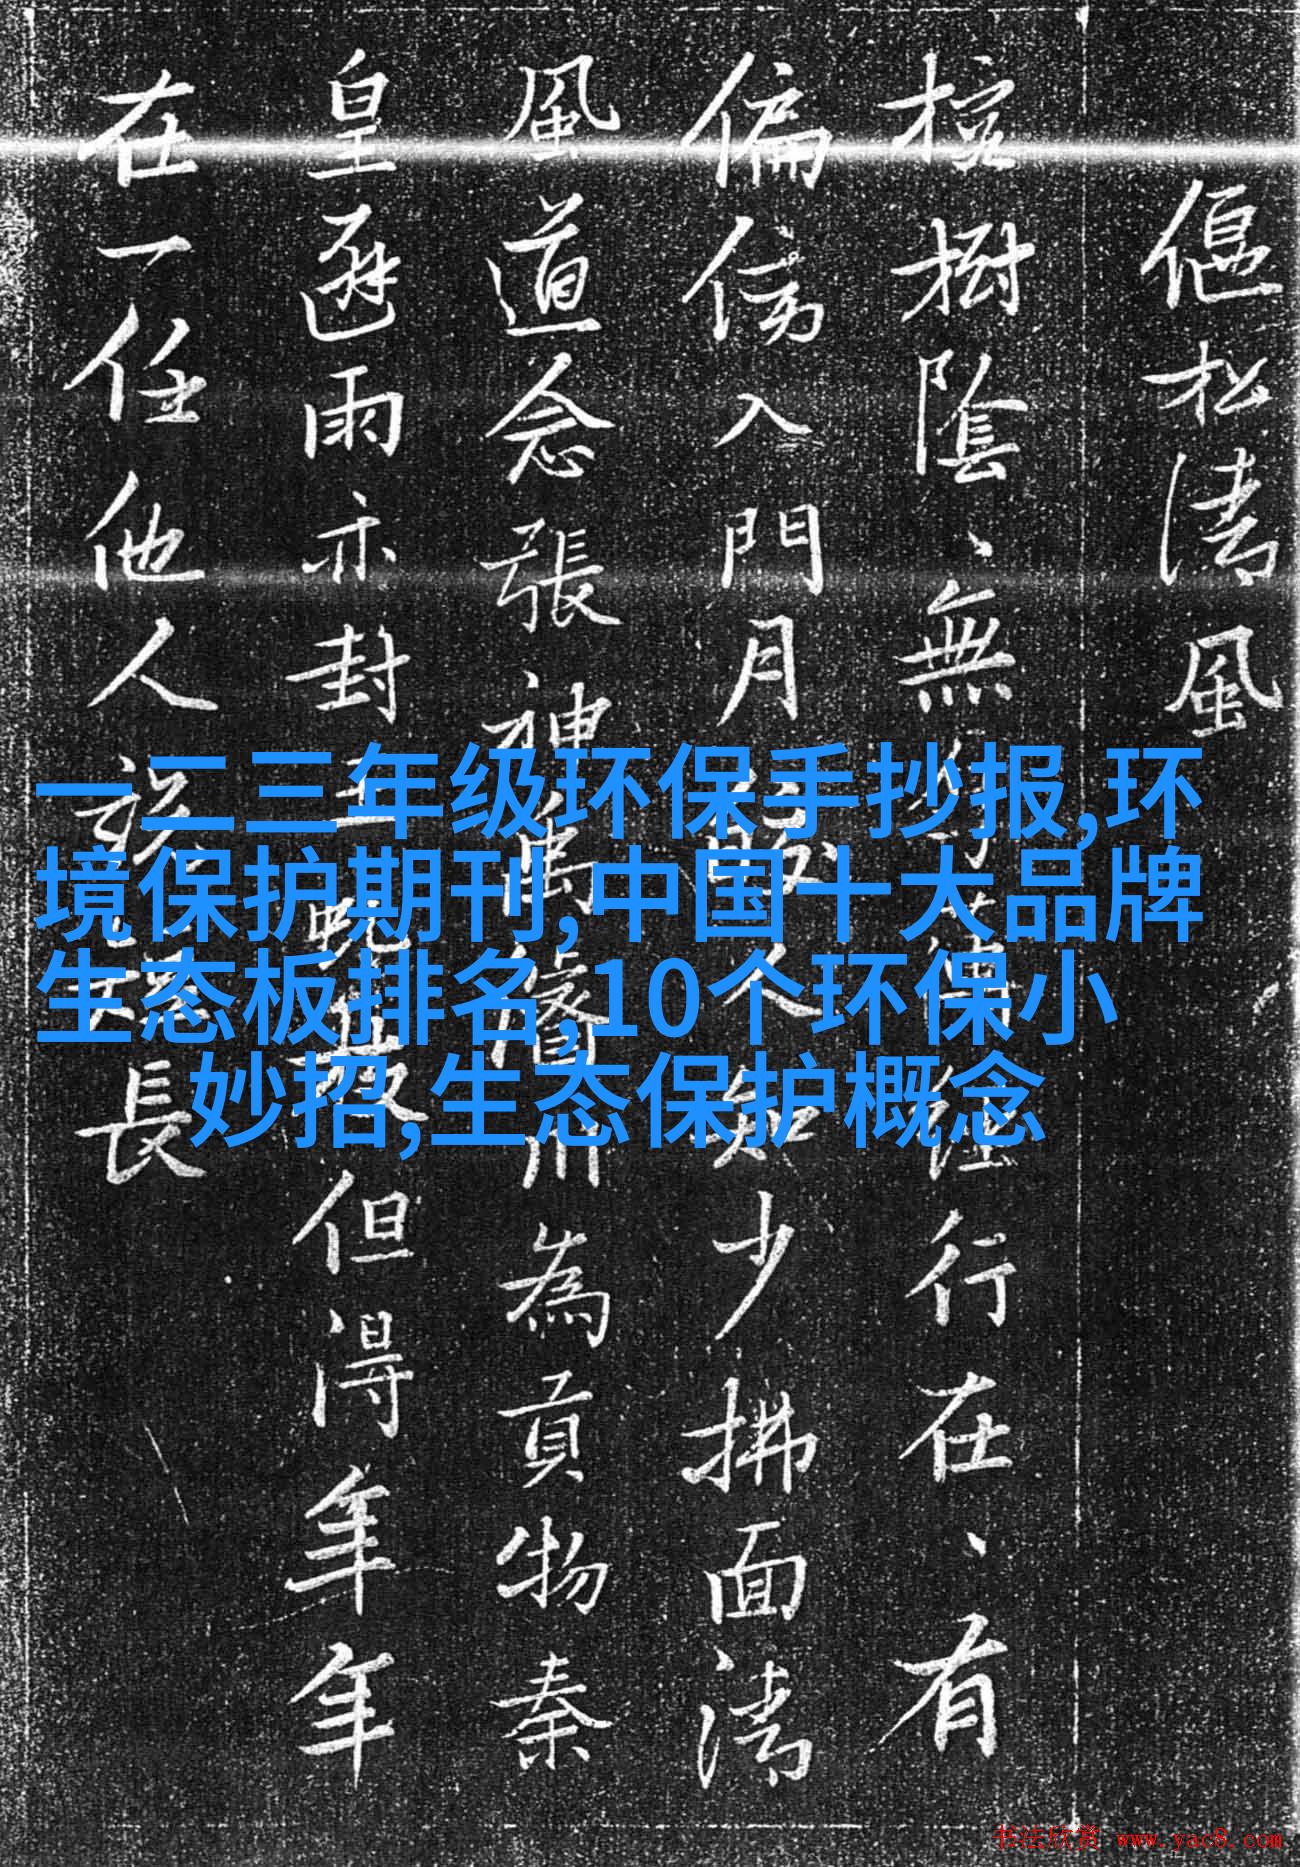 偃松清風
按樹陰、無
行在、有
偏傍入門月
人知少拂面清
風道念張神
為貢物秦
皇避雨亦封
但得年年
在一任他人
長
一二三年级环保手抄报,环
境保护期刊,中国十大品牌
生态板排名,10个环保小
妙招,生态保护概念
书法欣赏 www.yac8.com